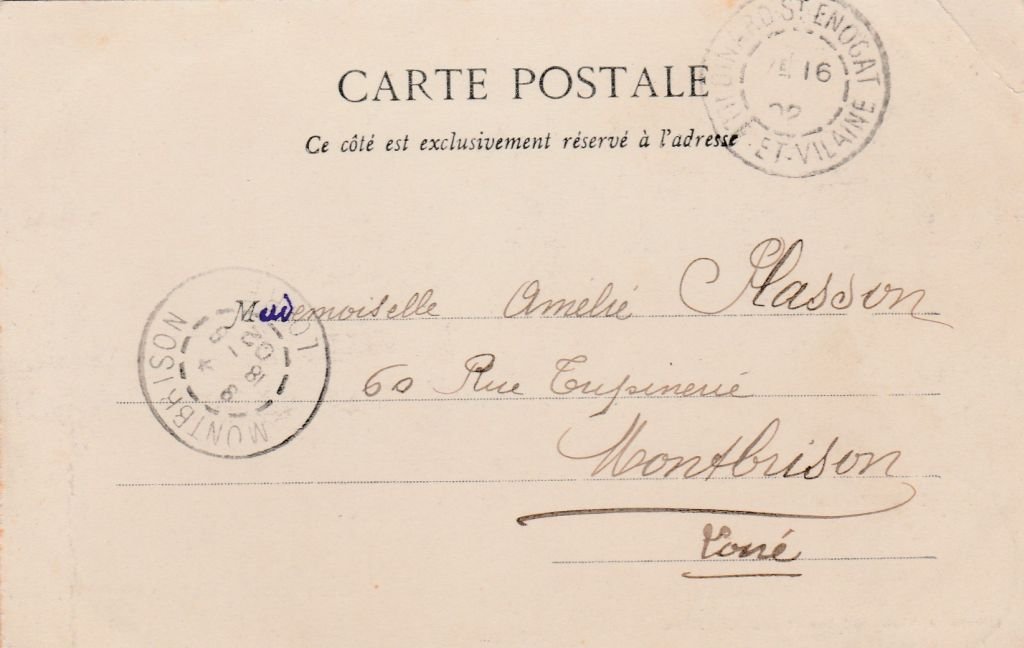 CARTE POSTALE
Ce côté est exclusivement réservé à l'adresse
DINARD-ST ENOGAT
16
02
ET-VILAINE
Mademoiselle Amélie Plasson
60 Rue Tupinerie
Montbrison
Loire
MONTBRISON
LOIRE
18
02